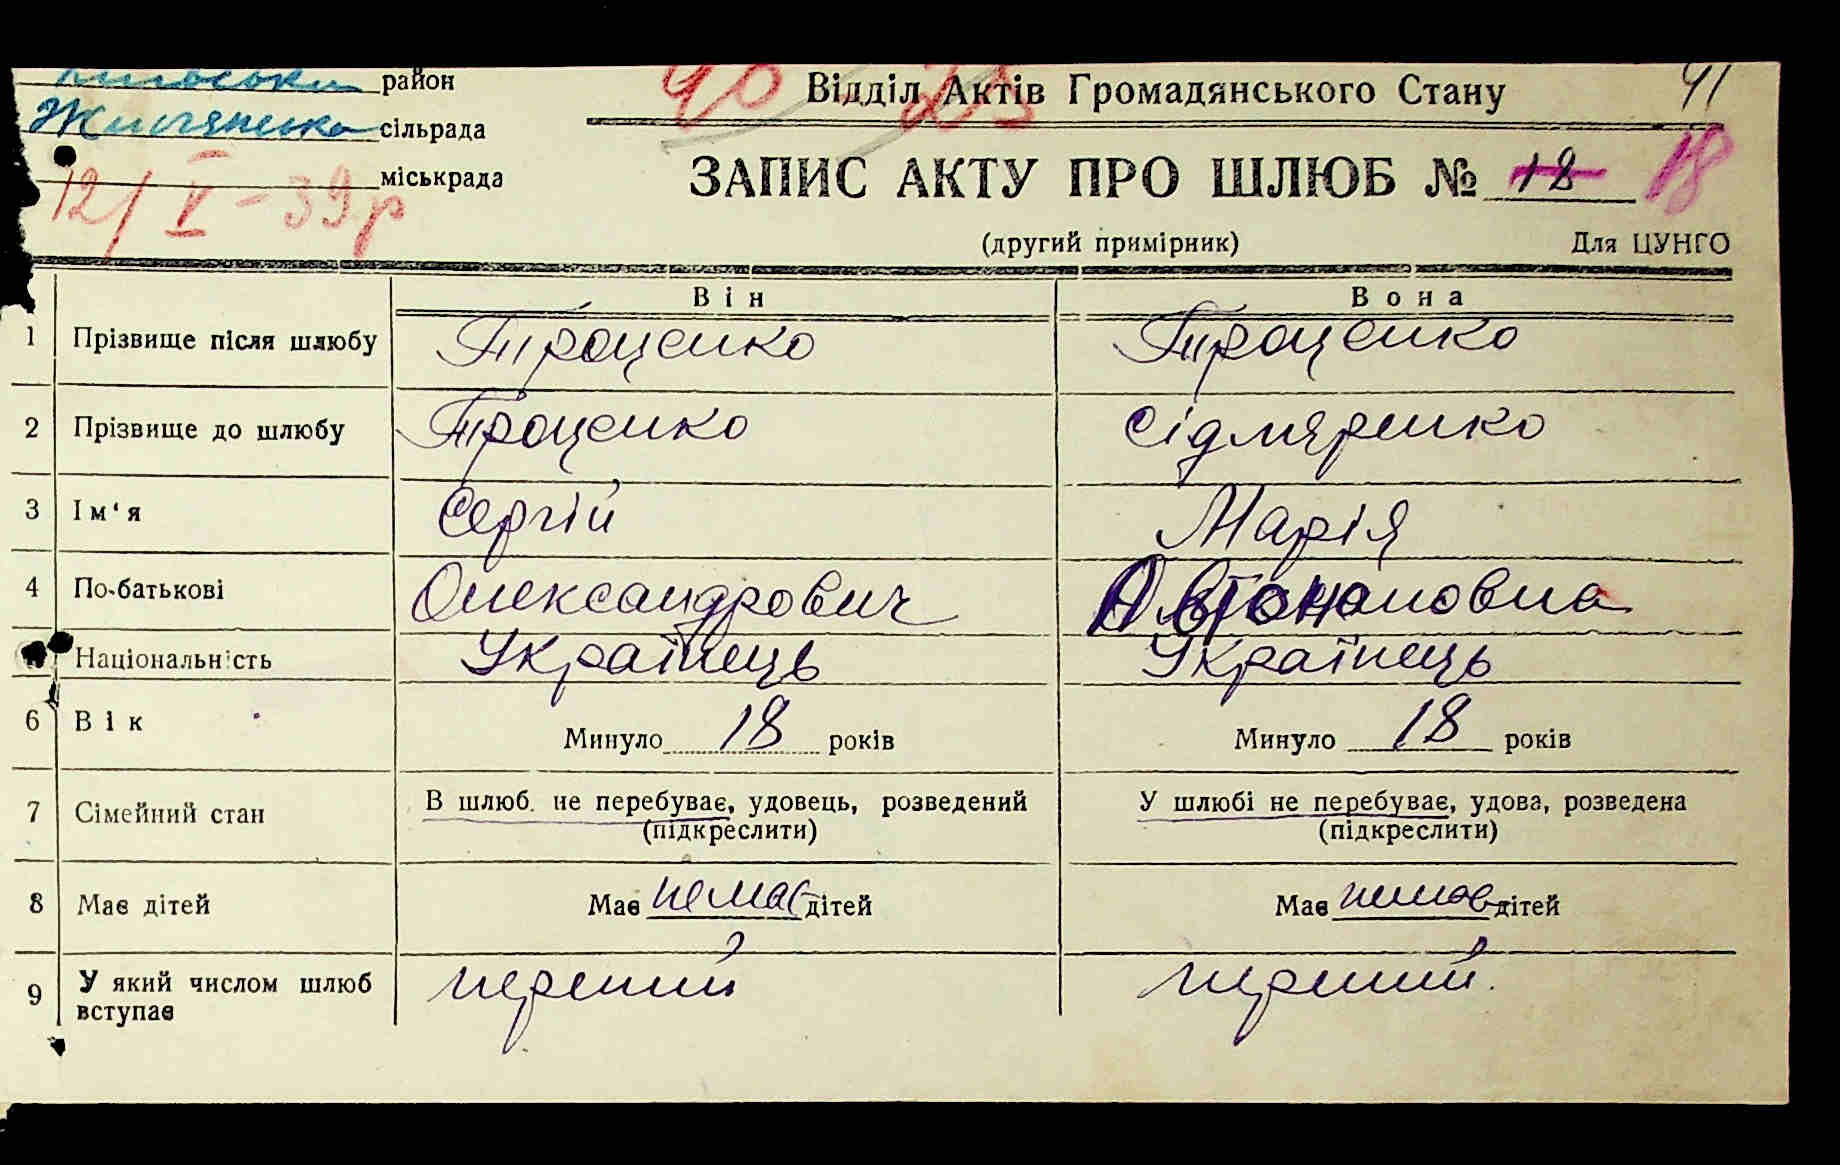 район
Відділ Актів Громадянського Стану
41
сільрада
міськрада
12/V-39р
ЗАПИС АКТУ ПРО ШЛЮБ № 18 18
(другий примірник)
Для ЦУНГО
Він Вона
1 Прізвище після шлюбу Троценко Троценко
2 Прізвище до шлюбу Троценко Сідляренко
3 Ім'я Сергій Марія
4 По-батькові Олександрович
Національність Українець Українець
6 Вік Минуло 18 років Минуло 18 років
7 Сімейний стан В шлюб. не перебуває, удовець, розведений У шлюбі не перебуває, удова, розведена
(підкреслити) (підкреслити)
8 Має дітей Має немає дітей Має немає дітей
9 У який числом шлюб вступає перший перший